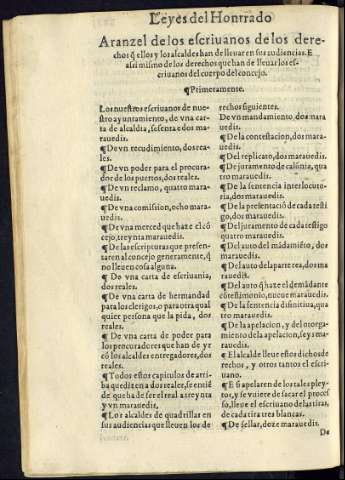 Leyes del Hontrado
Aranzel de los escriuanos de los dere-
chos q̃ ellos y los alcaldes han de lleuar en sus audiencias. E
assi mismo de los derechos que han de lleuar los es-
criuanos del cuerpo del concejo.
¶Primeramente.
Los nuestros escriuanos de nue-
stro ayuntamiento, de vna car-
ta de alcaldia, sesenta e dos ma-
rauedis.
¶De vn recudimiento, dos rea-
les.
¶De vn poder para el procura-
dor de los puertos, dos reales.
¶De vn reclamo, quatro mara-
uedis.
¶De vna comission, ocho mara-
uedis.
¶De vna merced que haze el cõ
cejo, treynta marauedis.
¶De las escripturas que presen-
taren al concejo generalmente, q̃
no lleuen cosa alguna.
¶De vna carta de escriuania,
dos reales.
¶De vna carta de hermandad
para los clerigos, o para otra qual
quier persona que la pida, dos
reales.
¶De vna carta de poder para
los procuradores que han de yr
cõ los alcaldes entregadores, dos
reales.
¶Todos estos capitulos de arri-
ba que dizen a dos reales, se entiẽ
de que ha de ser el real a treynta
y vn marauedis.
¶Los alcaldes de quadrillas en
sus audiencias que lleuen los de
rechos siguientes.
De vn mandamiento, dos mara
uedis.
¶De la contestacion, dos mara-
uedis.
¶Del replicato, dos marauedis.
¶De juramento de calũnia, qua
tro marauedis.
¶De la sentencia interlocuto-
ria, dos marauedis.
¶De la presentaciõ de cada testi
go, dos marauedis.
¶Del juramento de cada testigo
quatro marauedis.
¶Del auto del mãdamiẽto, dos
marauedis.
¶Del auto de la parte rea, dos ma
rauedis.
¶Del auto q̃ haze el demãdante
cõ testimonio, nueue marauedis.
¶De la sentencia difinitiua, qua
tro marauedis.
¶De la apelacion, y del otorga-
miento de la apelacion, seys ma-
rauedis.
¶El alcalde lleue estos dichos de
rechos, y otros tantos el escri-
uano.
¶E si apelaren de los tales pley-
tos, y se vuiere de sacar el proces
so, lleue el escriuano de las tiras,
de cada tira tres blancas.
¶De sellar, doze marauedis.
De